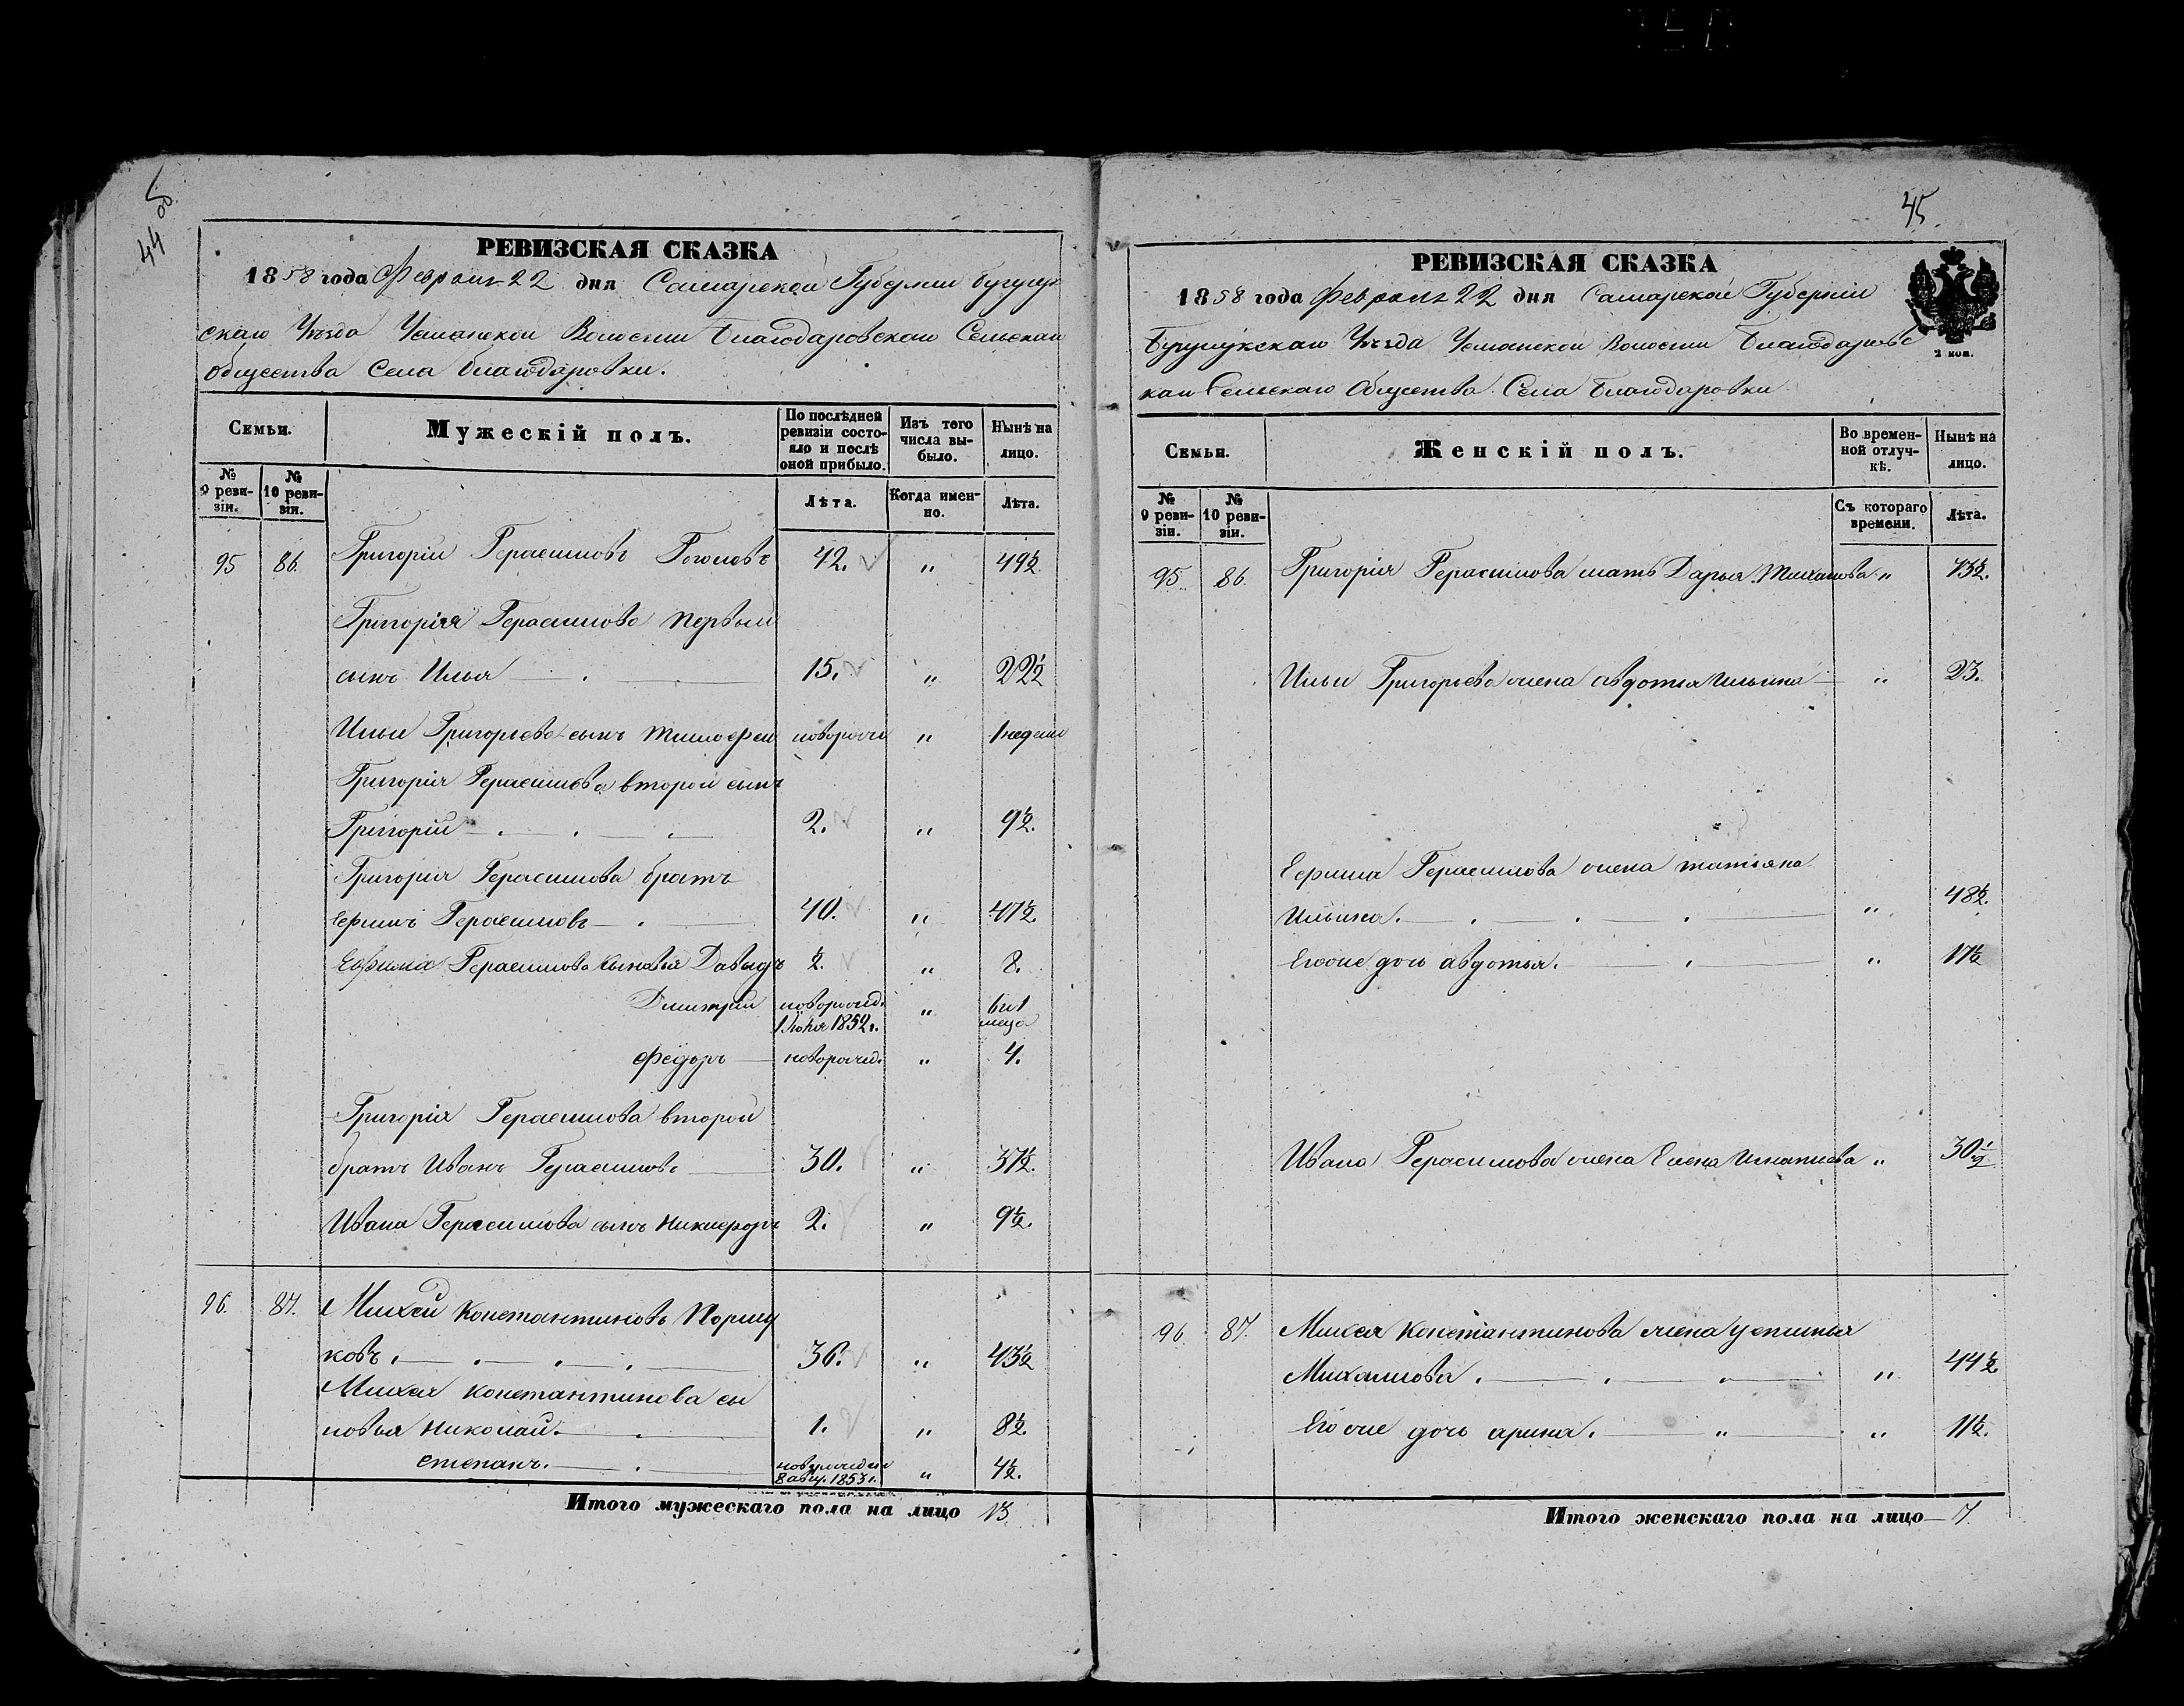 44
РЕВИЗСКАЯ СКАЗКА
1858 года Февраля 22 дня Самарской Губернии Бугурус
скаго Уѣзда Волости Благодаровскаго Сельскаго
Общества Села Благодаровки.
Семьи.
Мужескій полъ.
По послѣдней ревизіи состояло и послѣ оной прибыло.
Изъ того числа выбыло.
Нынѣ на лицо.
№ 9 ревизіи.
№ 10 ревизіи.
Лѣта.
Когда именно.
Лѣта.
95 86. Григорій Герасимовъ 42. " 49½
Григорія Герасимова первый
сынъ Илья 15. " 22½
Ильи Григорьева сынъ Тимофей новорожд " 1 недели
Григорія Герасимова второй сынъ
Григорій 2. " 9½.
Григорія Герасимова братъ
Ефимъ Герасимовъ 40. " 47½.
Ефима Герасимова сыновья Давыдъ ½. " 8.
Дмитрій новорожд. " 6 и 1
1852 г. месяца
Федоръ новорожд. " 4.
Григорія Герасимова второй
братъ Иванъ Герасимовъ 30. " 37½.
Ивана Герасимова сынъ Никифоръ 2. " 9½.
96. 87. Михей Константиновъ Поршу
ковъ. 36. " 43½
Михея Константинова сы
новья Николай. 1. " 8½.
Степанъ. новорожден " 4½.
8 авгу. 1853 г.
Итого мужескаго пола на лицо 13
45.
РЕВИЗСКАЯ СКАЗКА
1858 года Февраля 22 дня Самарской Губерніи
Бугурускаго Уѣзда Волости Благодаровс
каго Сельскаго Общества Села Благодаровки
2 коп.
Семьи.
Женскій полъ.
Во временной отлучкѣ.
Нынѣ на лицо.
№ 9 ревизіи.
№ 10 ревизіи.
Съ котораго времени.
Лѣта.
95. 86. Григорія Герасимова мать Дарья Михайлова " 73½.
Ильи Григорьева жена Авдотья Ильина " 23.
Ефима Герасимова жена Татьяна
Ильина. " 48½.
Егоже дочь Авдотья. " 17½
Ивана Герасимова жена Елена Игнатиева " 30½
96. 87. Михея Константинова жена Устинья
Михайлова. " 44½
Егоже дочь Арина. " " 11½.
Итого женскаго пола на лицо 7.